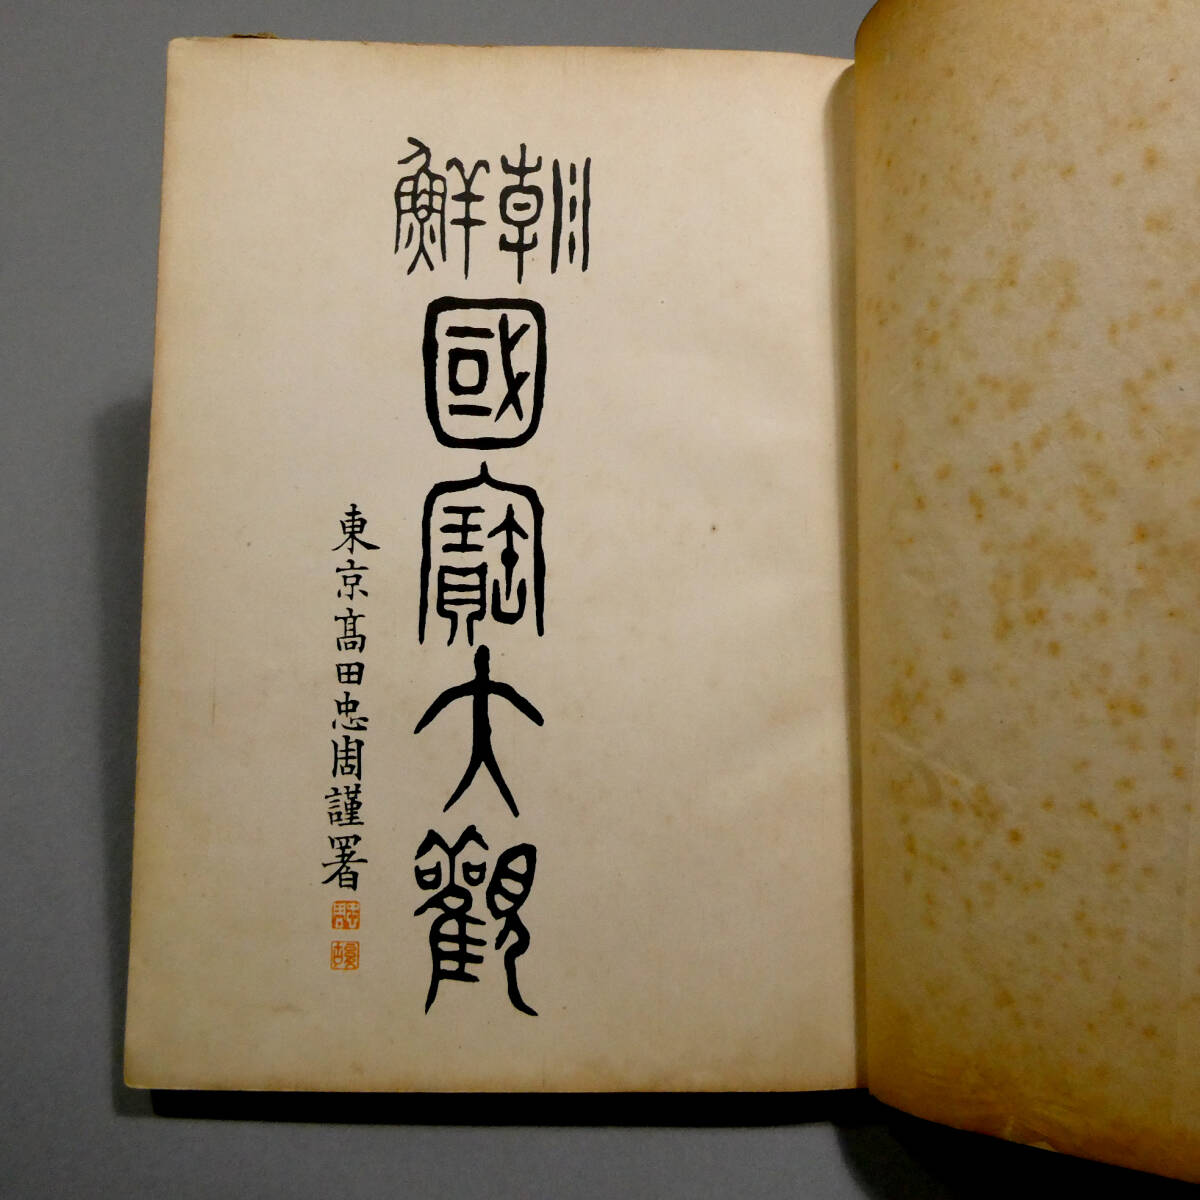 朝鮮
國寶大觀
東京髙田忠周謹署
忠周